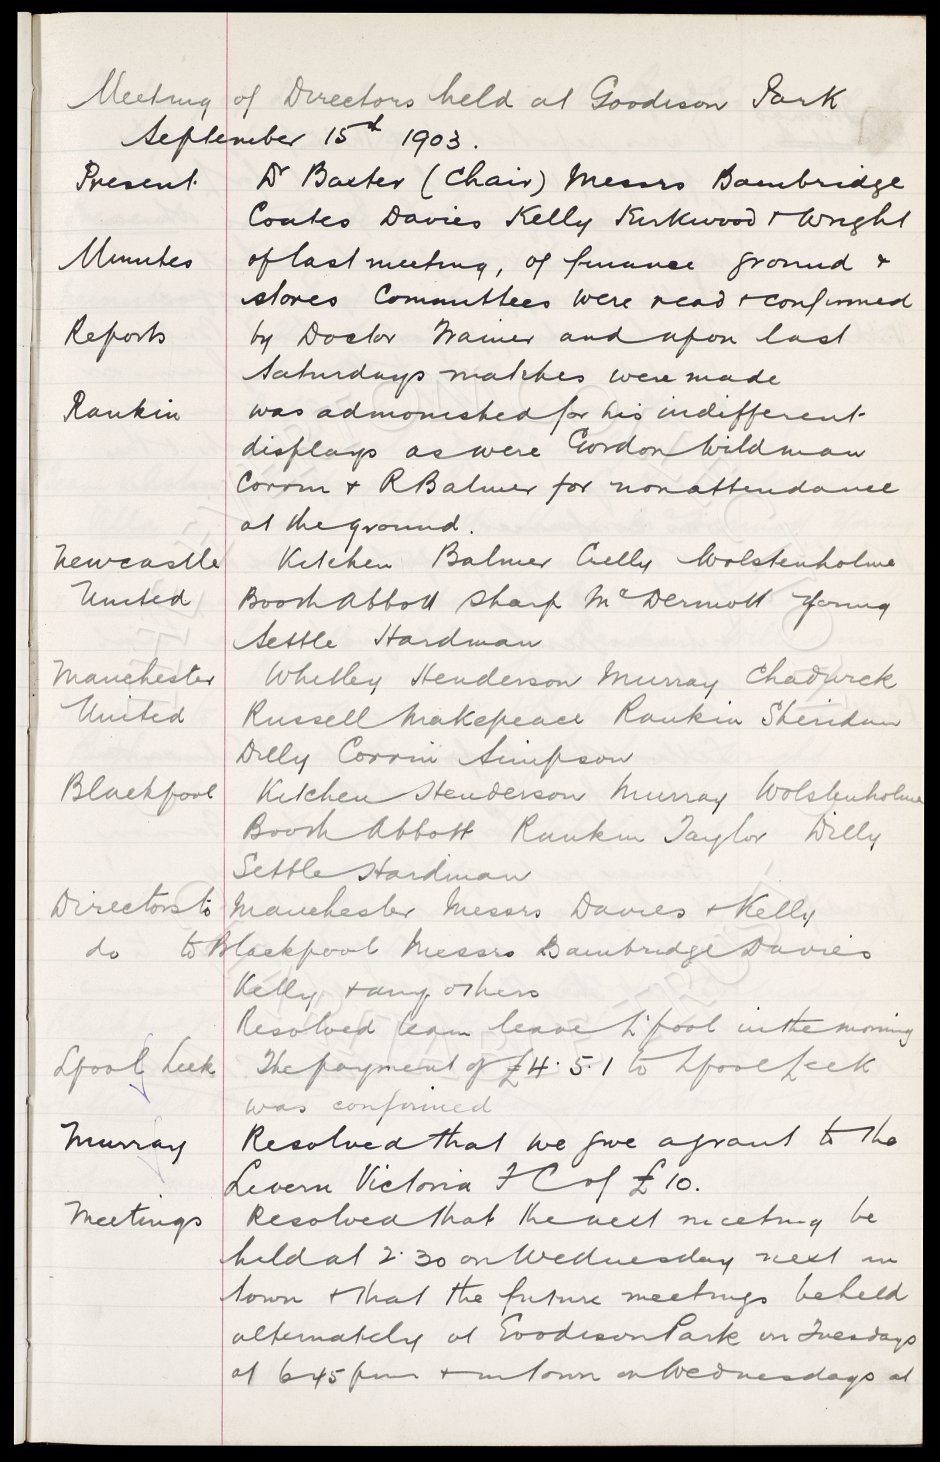 Meeting of Directors held at Goodison Park
September 15th 1903.
Present Dr Baxter (Chair) Messrs Bainbridge
Coates Davies Kelly Kirkwood & Wright
Minutes of last meeting, of finance ground &
stores Committees were read & confirmed
Reports by Doctor Trainer and upon last
Saturdays matches were made
Rankin was admonished for his indifferent
displays as were Gordon Wildman
Corrin & R Balmer for non attendance
at the ground.
Newcastle Kitchen Balmer Crelly Wolstenholme
United Booth Abbott Sharp McDermott Young
Settle Hardman
Manchester Whitley Henderson Murray Chadwick
United Russell Makepeace Rankin Sheridan
Dilly Corrin Simpson
Blackpool Kitchen Henderson Murray Wolstenholme
Booth Abbott Rankin Taylor Dilly
Settle Hardman
Directors to Manchester Messrs Davies & Kelly
do to Blackpool Messrs Bainbridge Davies
Kelly & any others
Resolved team leave L'pool in the morning
Lpool Leek The payment of £4.5.1 to Lpool Leek
was confirmed
Murray Resolved that we give a grant to the
Levern Victoria F C of £10.
Meetings Resolved that the next meeting be
held at 2.30 on Wednesday next in
town & that the future meetings be held
alternately at Goodison Park on Tuesdays
at 6.45 pm & in town on Wednesdays at